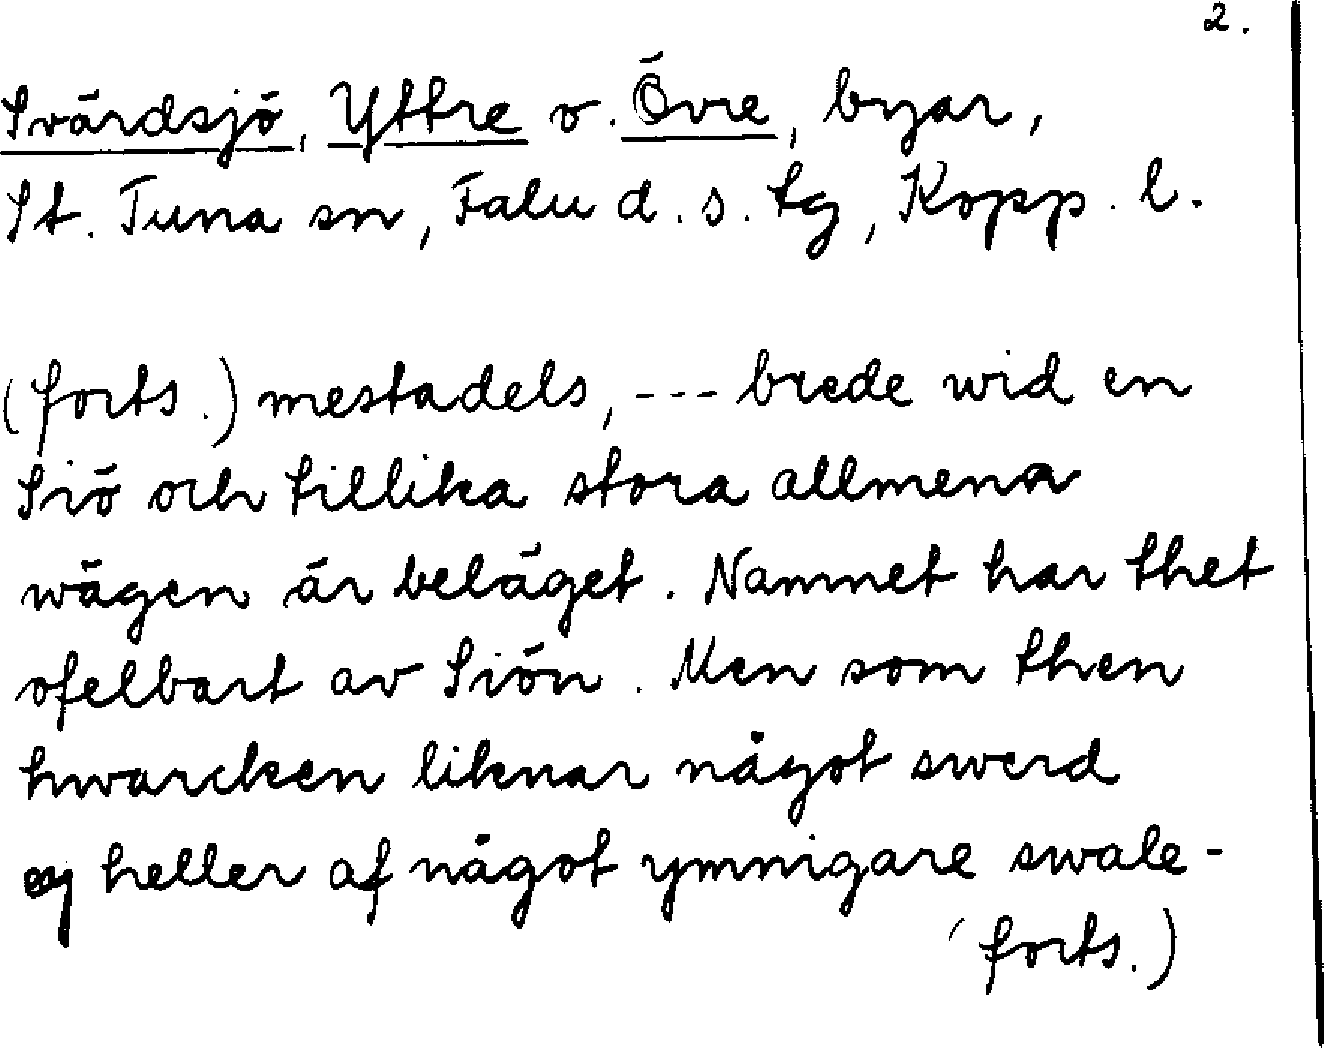 2.
Svärdsjö, Yttre o. Övre, byar,
St. Tuna sn, Falu d. s. tg, Kopp. l.
(forts.) mestadels, --- brede wid en
Siö och tillika stora allmena
wägen är beläget. Namnet har thet
ofelbart av Siön. Men som then
hwarcken liknar något swerd
ej heller af något ymnigare swale-
(forts.)